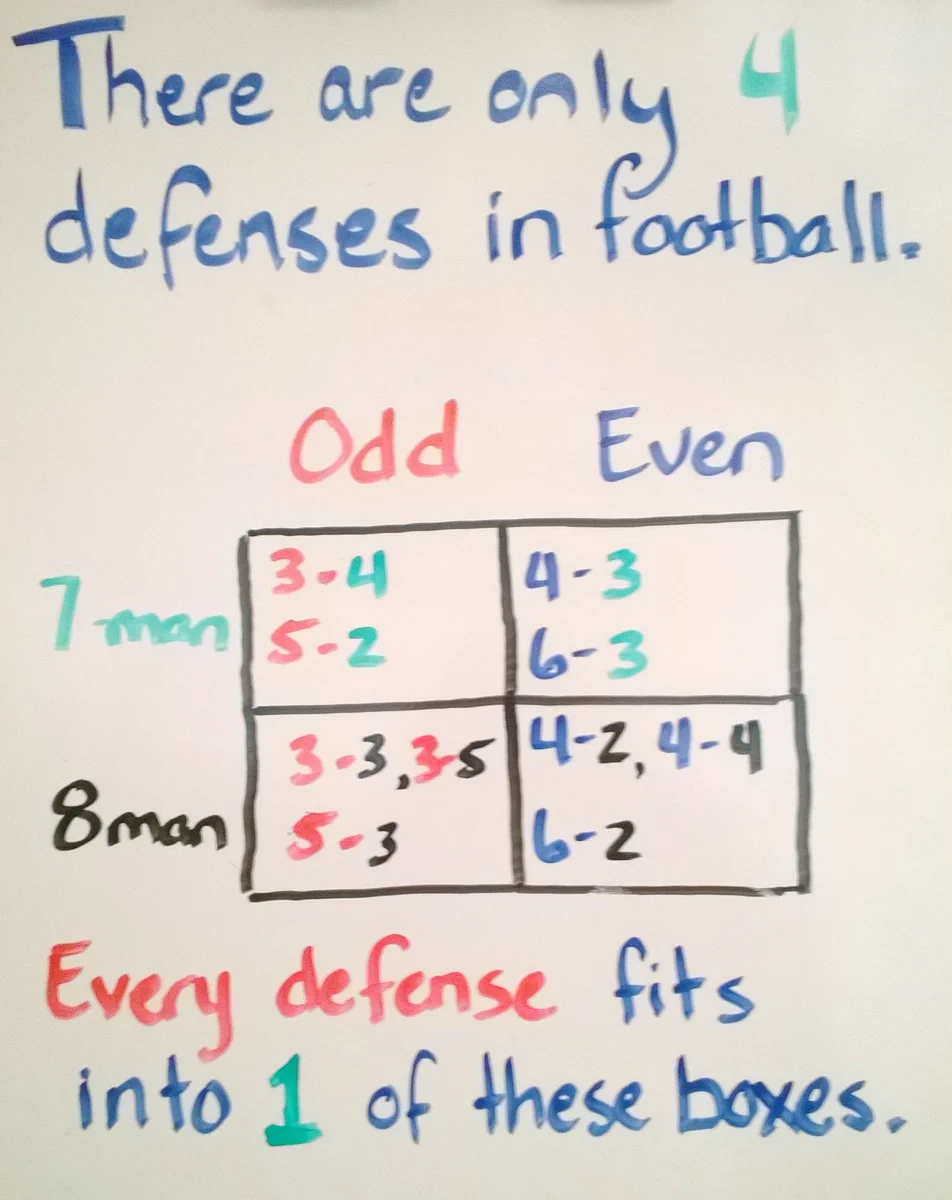 There are only 4
defenses in football.
Odd Even
3-4 4-3
7-man
5-2 6-3
3-3, 3-5 4-2, 4-4
8man
5-3 6-2
Every defense fits
into 1 of these boxes.